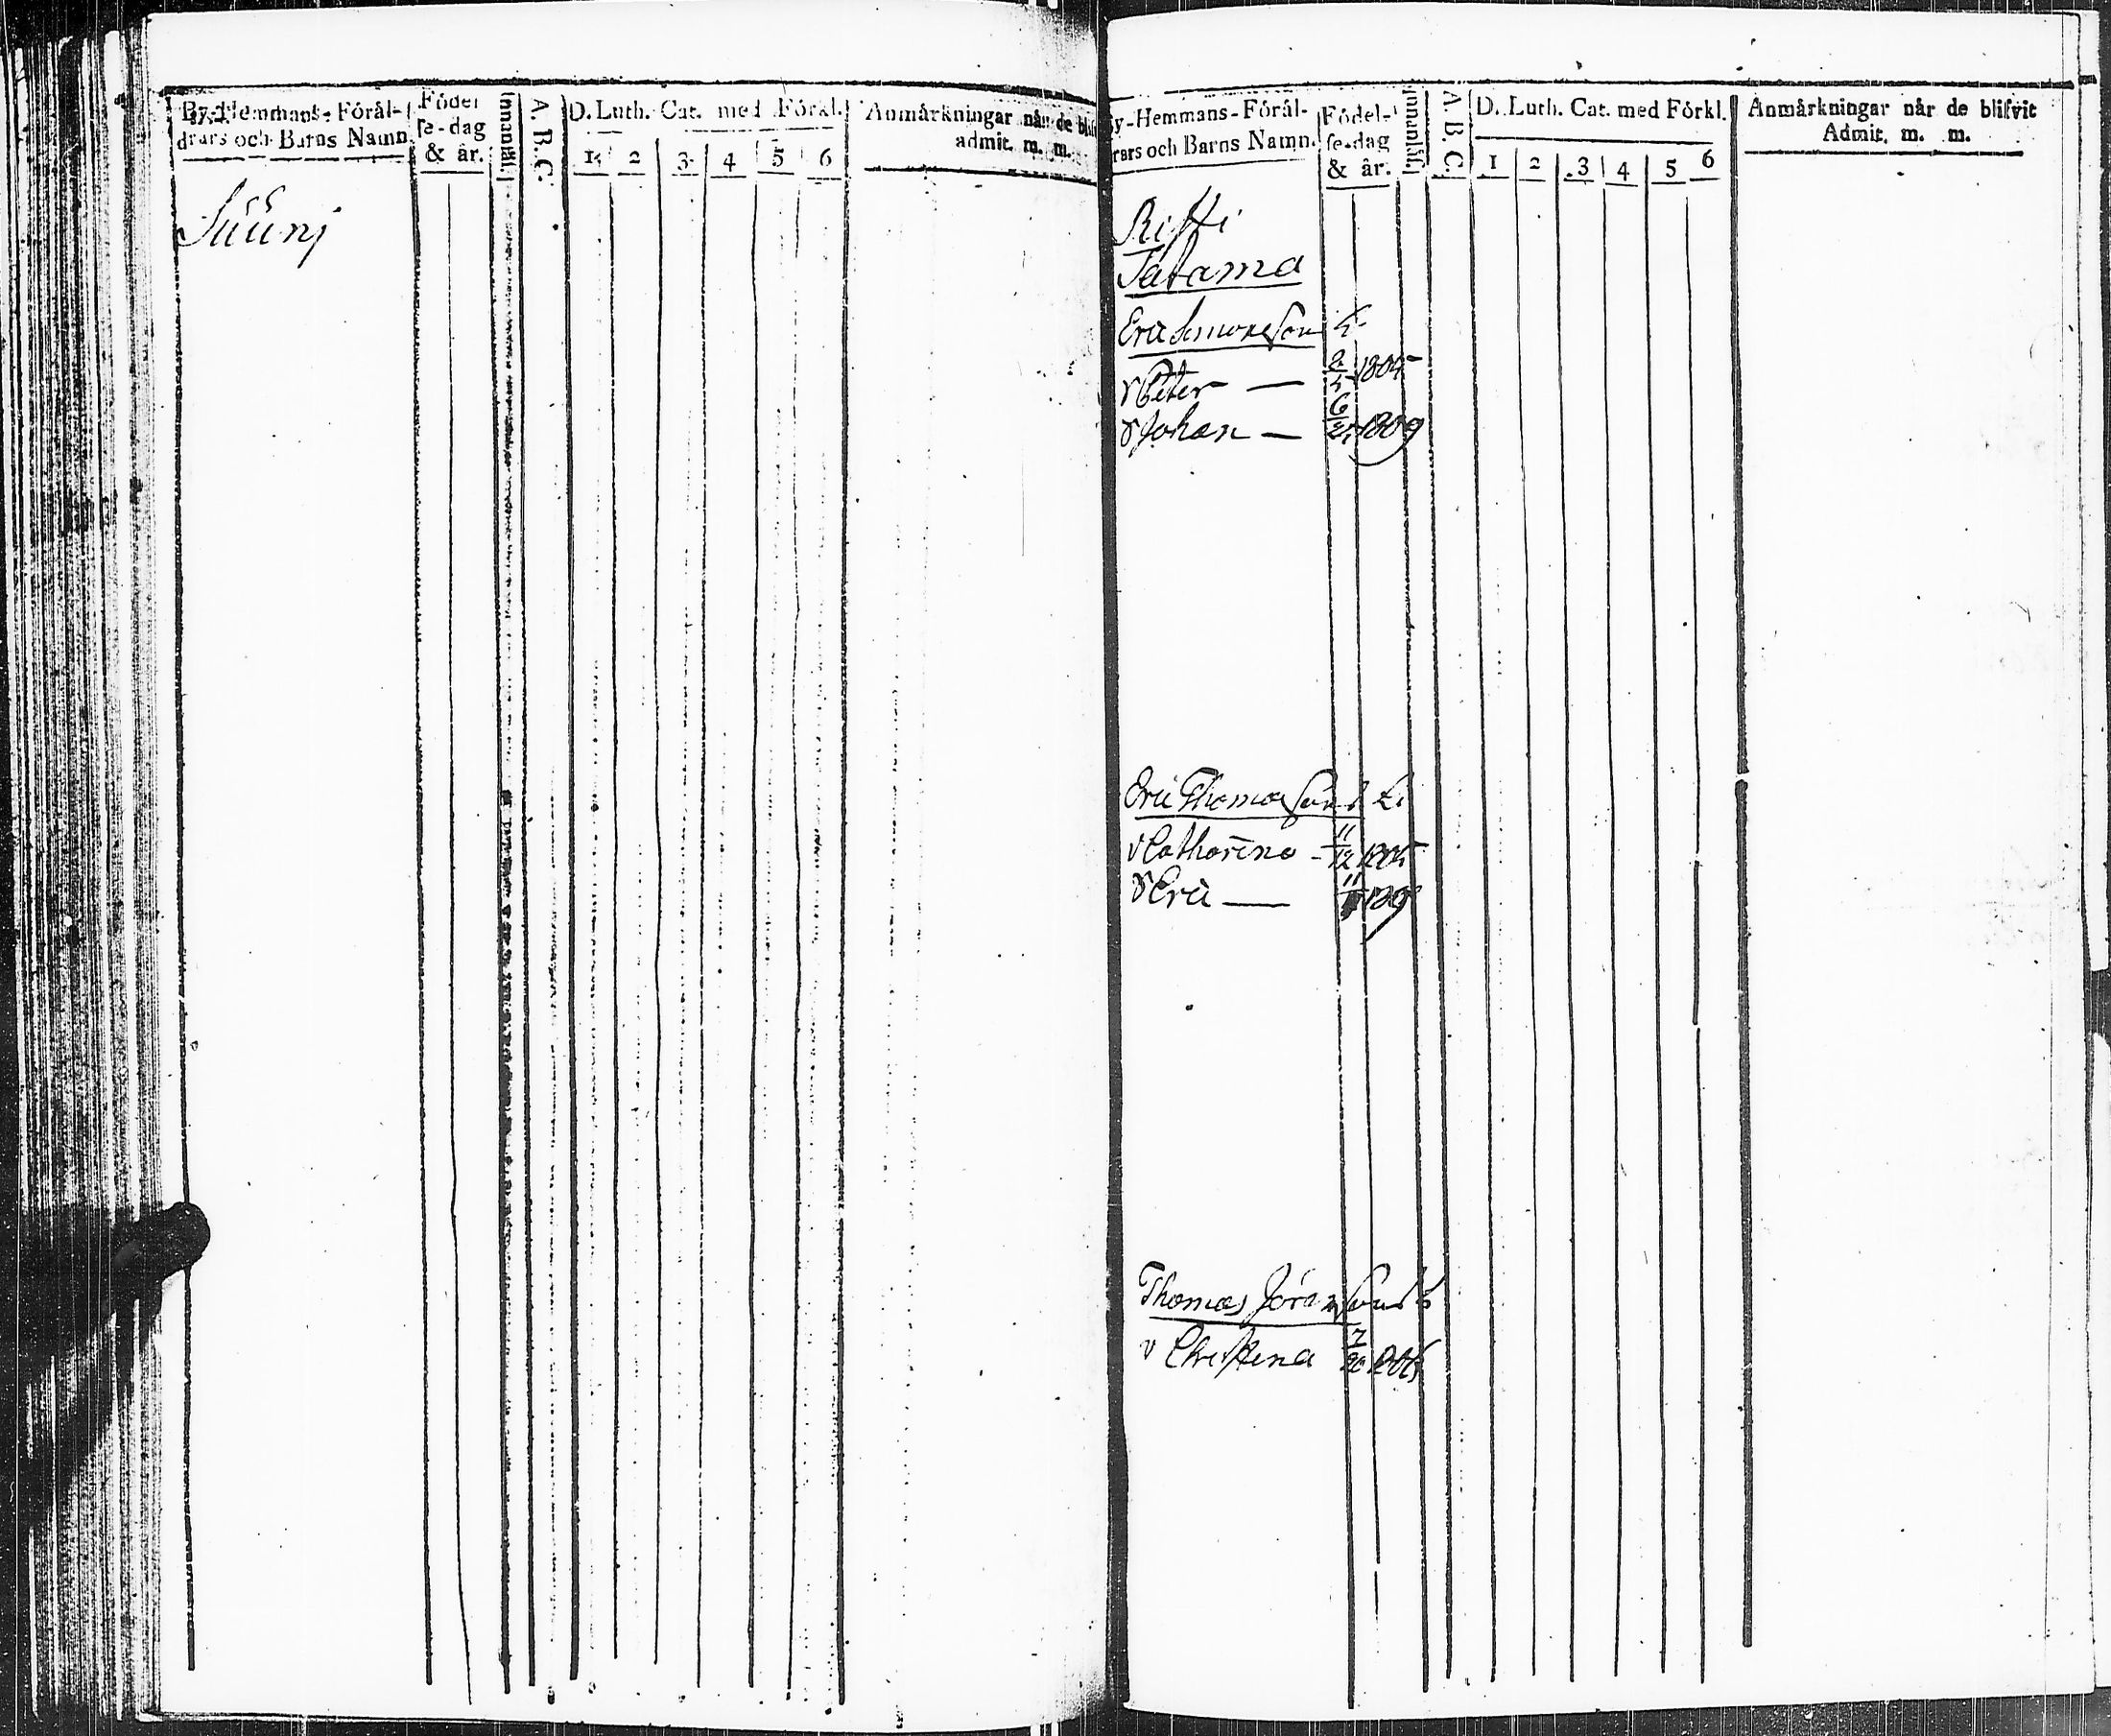 By-Hemmans-Förål-
drars och Barns Namn.
Födel
se-dag
& år.
Innanläs.
A. B. C.
D. Luth. Cat. med Förkl.
1. 2 3 4 5 6
Anmårkningar når de blif
admit. m. m.
Suuni
By-Hemmans-Förål-
rars och Barns Namn.
Födel-
se-dag
& år.
Innanläs.
A. B. C.
D. Luth. Cat. med Förkl.
1 2 3 4 5 6
Anmårkningar når de blifvit
Admit. m. m.
Riffi
Tatama
Eric Simonsson
Peter — 1805
Johan — 1809
Eric Thomasson
Catharina 11/12 1805
Eric — 11 1809
Thomas Jöransson
Christina 7/20